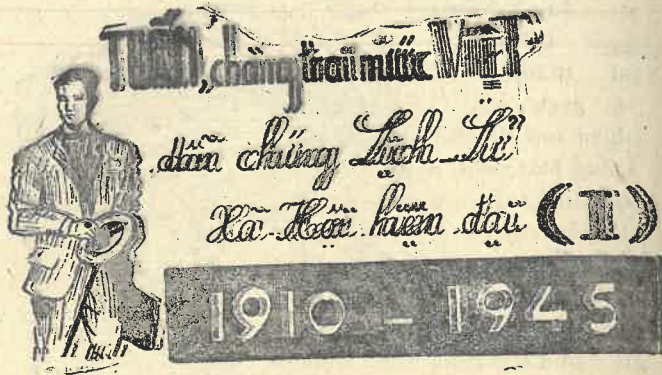 TUẤN, chàng trai nước VIỆT
dẫn chứng Lịch Sử
Xã-Hội hiện đại (I)
1910 - 1945